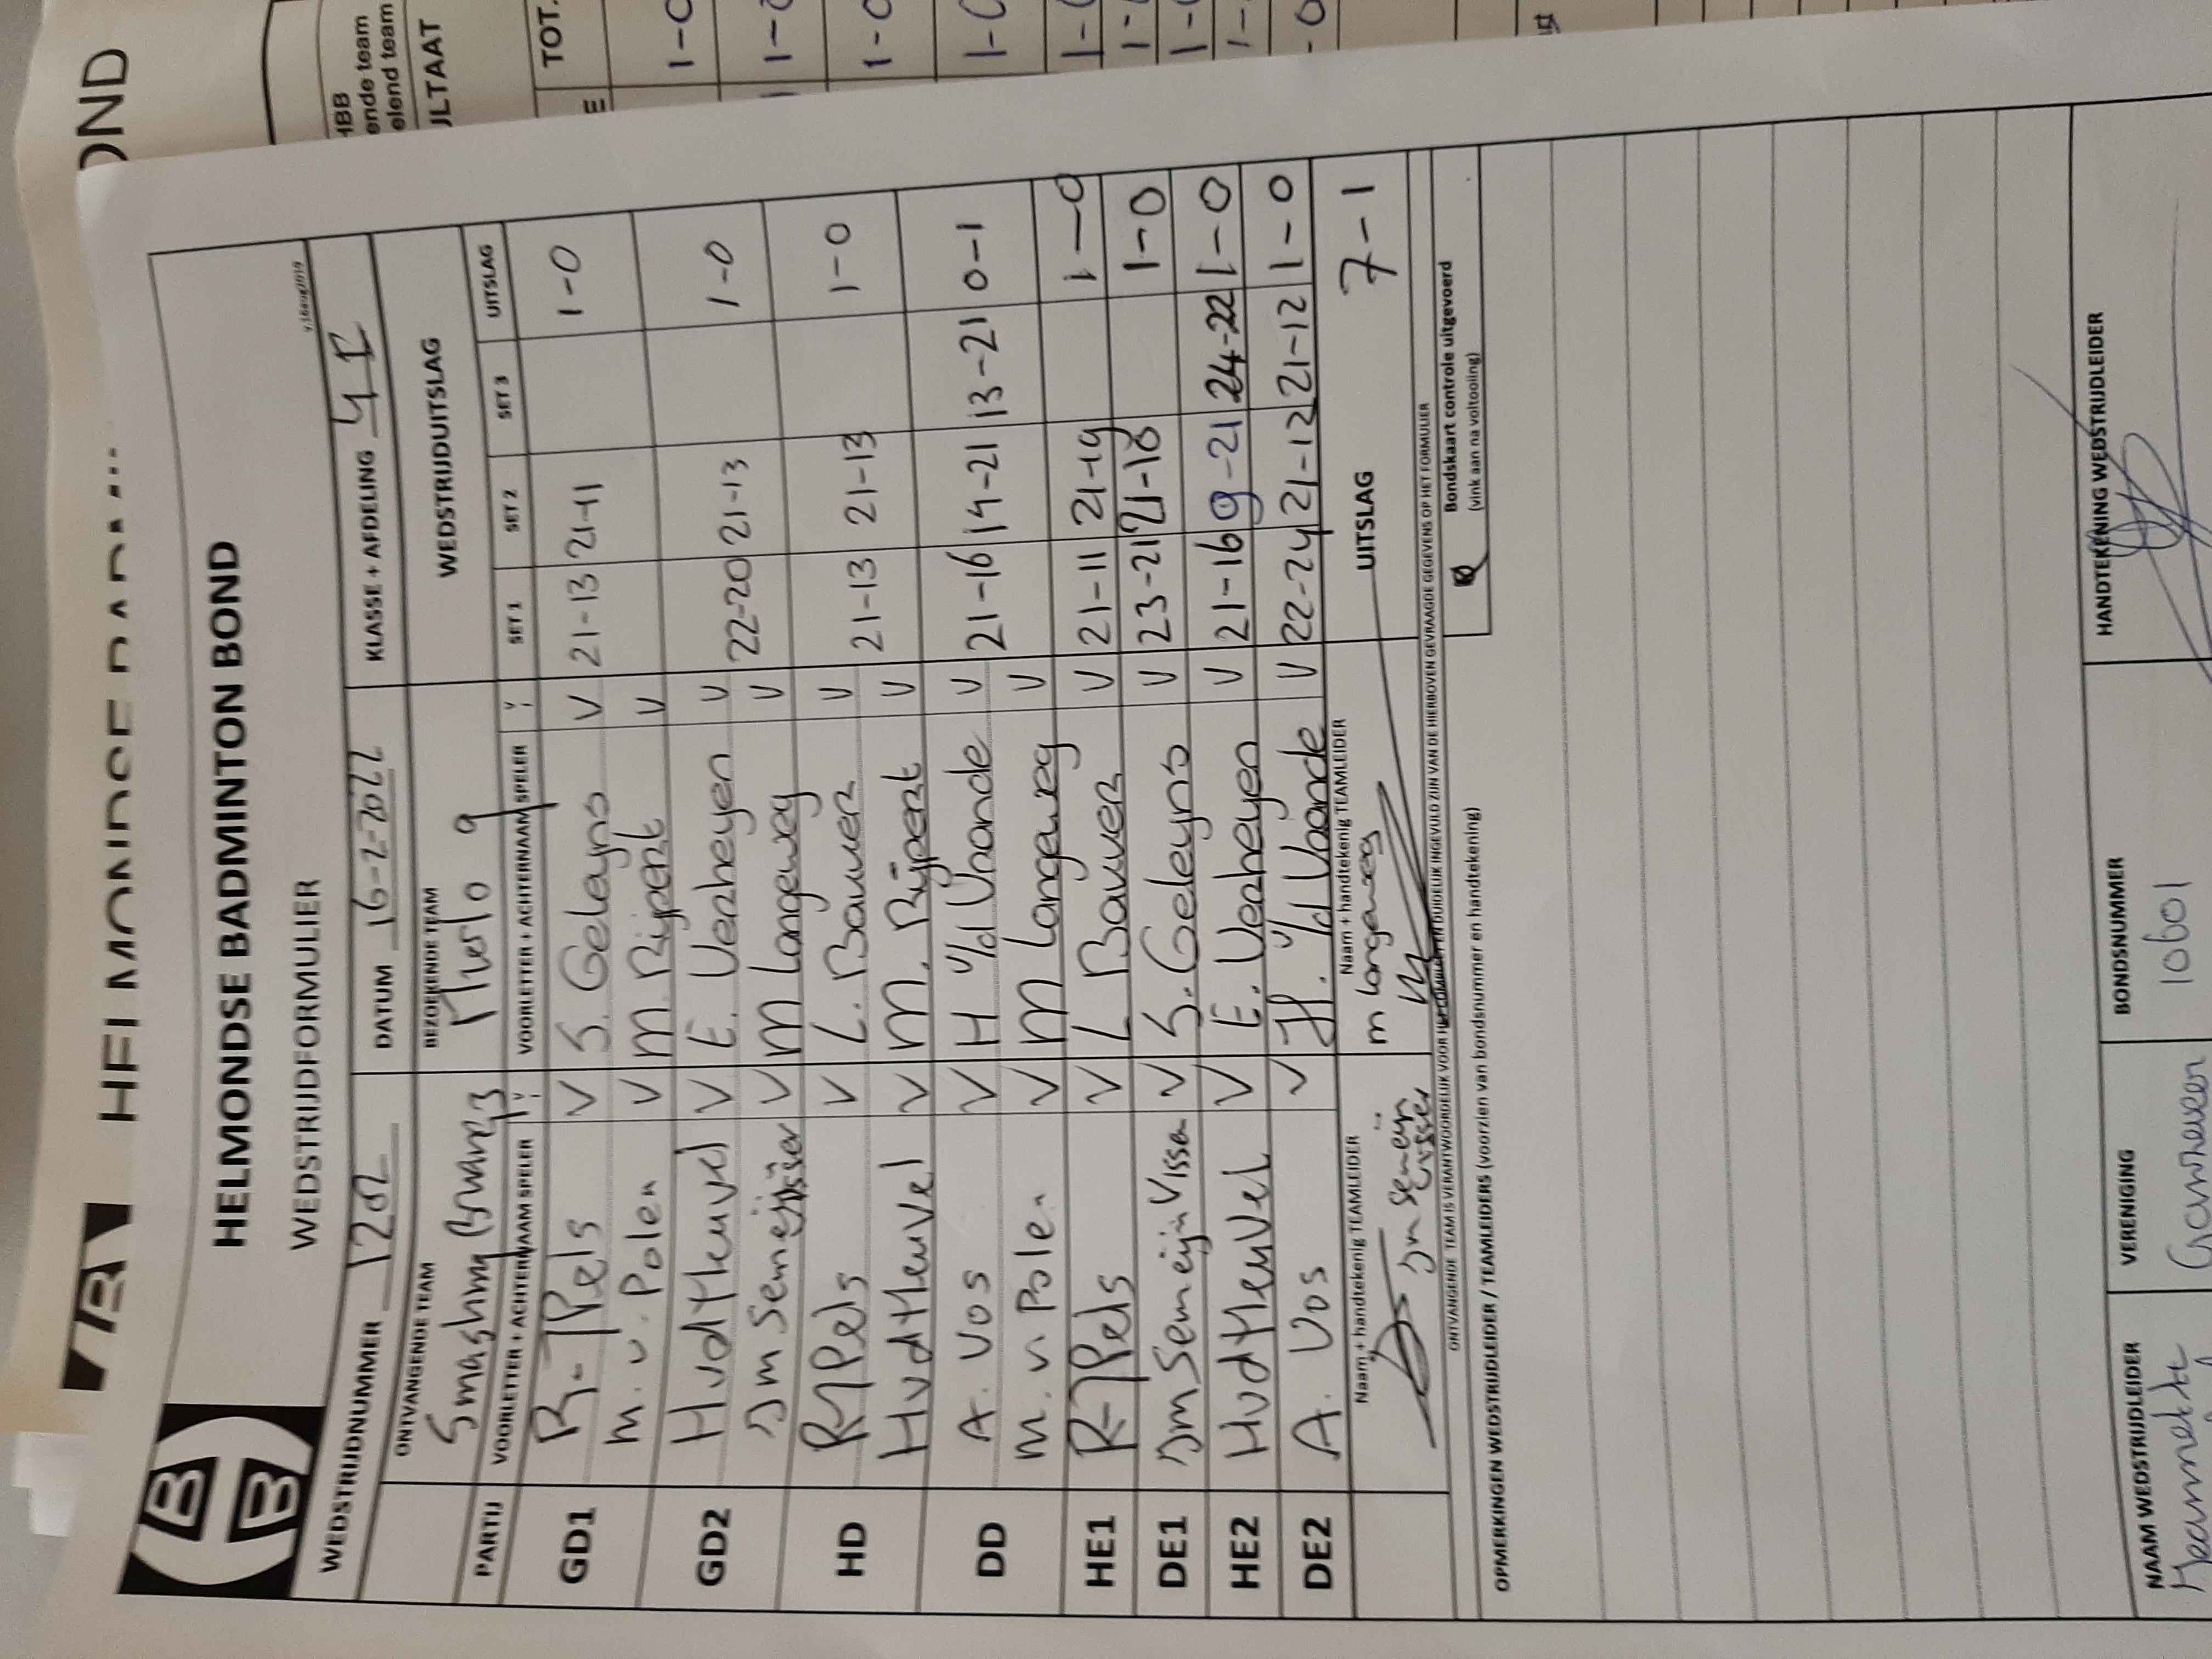 HELMONDSE BADMINTON BOND
WEDSTRIJDFORMULIER
v16aug2019
WEDSTRIJDNUMMER 1202 DATUM 16-2-2022 KLASSE + AFDELING 4E
ONTVANGENDE TEAM BEZOEKENDE TEAM WEDSTRIJDUITSLAG
Smashing Brwans 13 Mierlo 9
PARTIJ VOORLETTER + ACHTERNAAM SPELER V VOORLETTER + ACHTERNAAM SPELER V SET 1 SET 2 SET 3 UITSLAG
GD1 R Pels V S. Geleyns V 21-13 21-11 1-0
m. v. Polen V M. Rijpert V
GD2 Hvdtleuvel V E. Verheyen V 22-20 21-13 1-0
Jm Semeijn Visser V M Langeweg V
HD R Pels V L. Bouwer V 21-13 21-13 1-0
Hvdtleuvel V M. Rijpert V
DD A. Vos V H v/d Vrande V 21-16 14-21 13-21 0-1
m. v Polen V M Langeweg V
HE1 R Pels V L Bouwer V 21-11 21-19 1-0
DE1 Jm Semeijn Visser V S. Geleyns V 23-21 21-18 1-0
HE2 Hvdtleuvel V E. Verheyen V 21-16 9-21 24-22 1-0
DE2 A. Vos V H. v/d Vrande V 22-24 21-12 21-12 1-0
Naam + handtekenig TEAMLEIDER Naam + handtekenig TEAMLEIDER UITSLAG 7-1
Jm Semeijn Visser m langeweg
ONTVANGENDE TEAM IS VERANTWOORDELIJK VOOR HET COMPLEET EN DUIDELIJK INGEVULD ZIJN VAN DE HIERBOVEN GEVRAAGDE GEGEVENS OP HET FORMULIER
Bondskaart controle uitgevoerd
(vink aan na voltooiing)
OPMERKINGEN WEDSTRIJDLEIDER / TEAMLEIDERS (voorzien van bondsnummer en handtekening)
NAAM WEDSTRIJDLEIDER VERENIGING BONDSNUMMER HANDTEKENING WEDSTRIJDLEIDER
10601